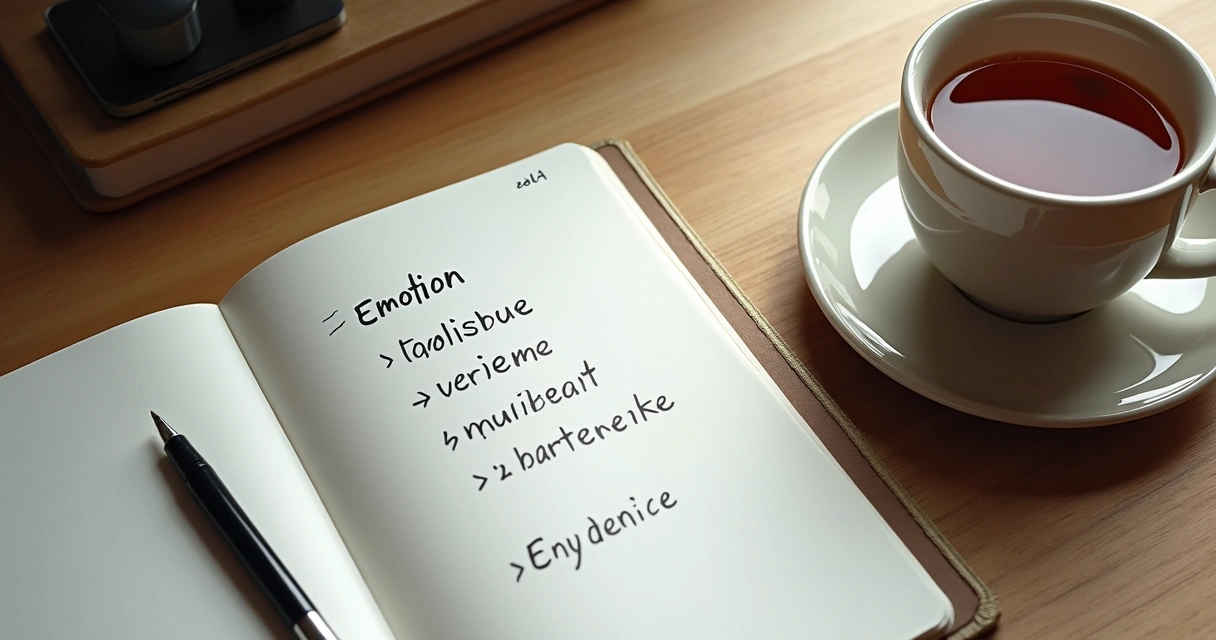 Emotion
> Tarolisbue
→ verieme
muiibeait
> 2 barteneike
> Enydenice